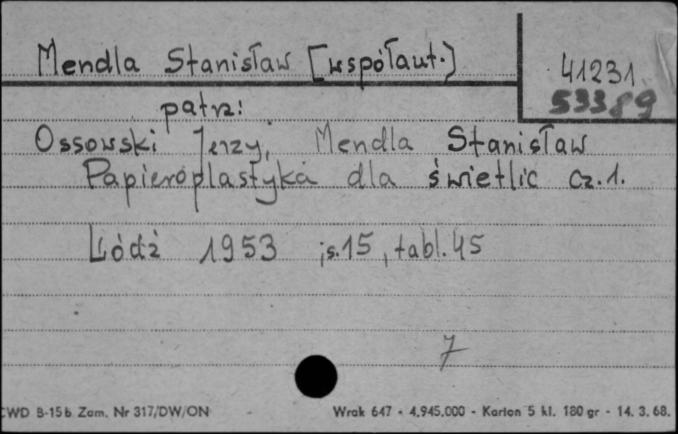 Mendla Stanisław [współaut.]
41231
53389
patrz:
Ossowski Jerzy, Mendla Stanisław
Papieroplastyka dla świetlic cz.1.
Łódź 1953 ;s.15, tabl.45
7
CWD B-15b Zam. Nr 317/DW/ON Wrak 647 - 4.945.000 - Karton 5 kl. 180 gr - 14. 3. 68.